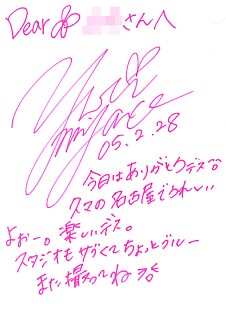 Dear さんへ
05.2.28
今日はありがとうデス
久々の名古屋でうれしい
よぉー。楽しいデス。
スタジオもサブくてちょっとブルー
また撮ってね